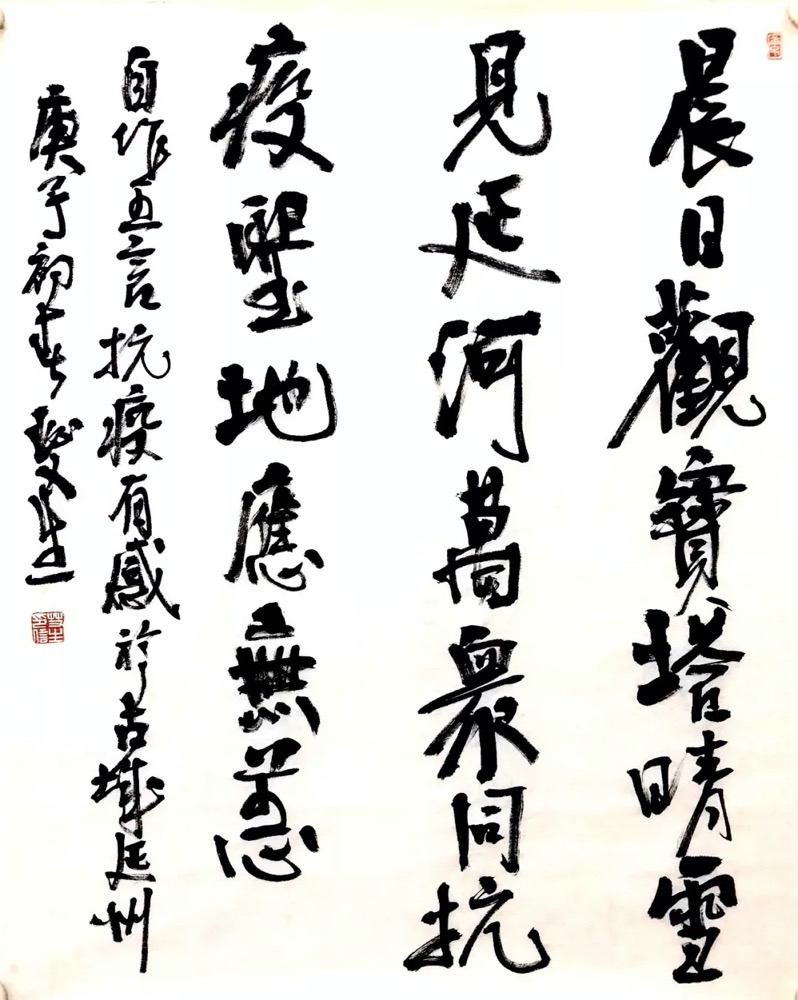 晨日觀寶塔晴雪
見延河萬衆同抗
疫聖地應無恙
自作五言抗疫有感於古城延州
庚子初春